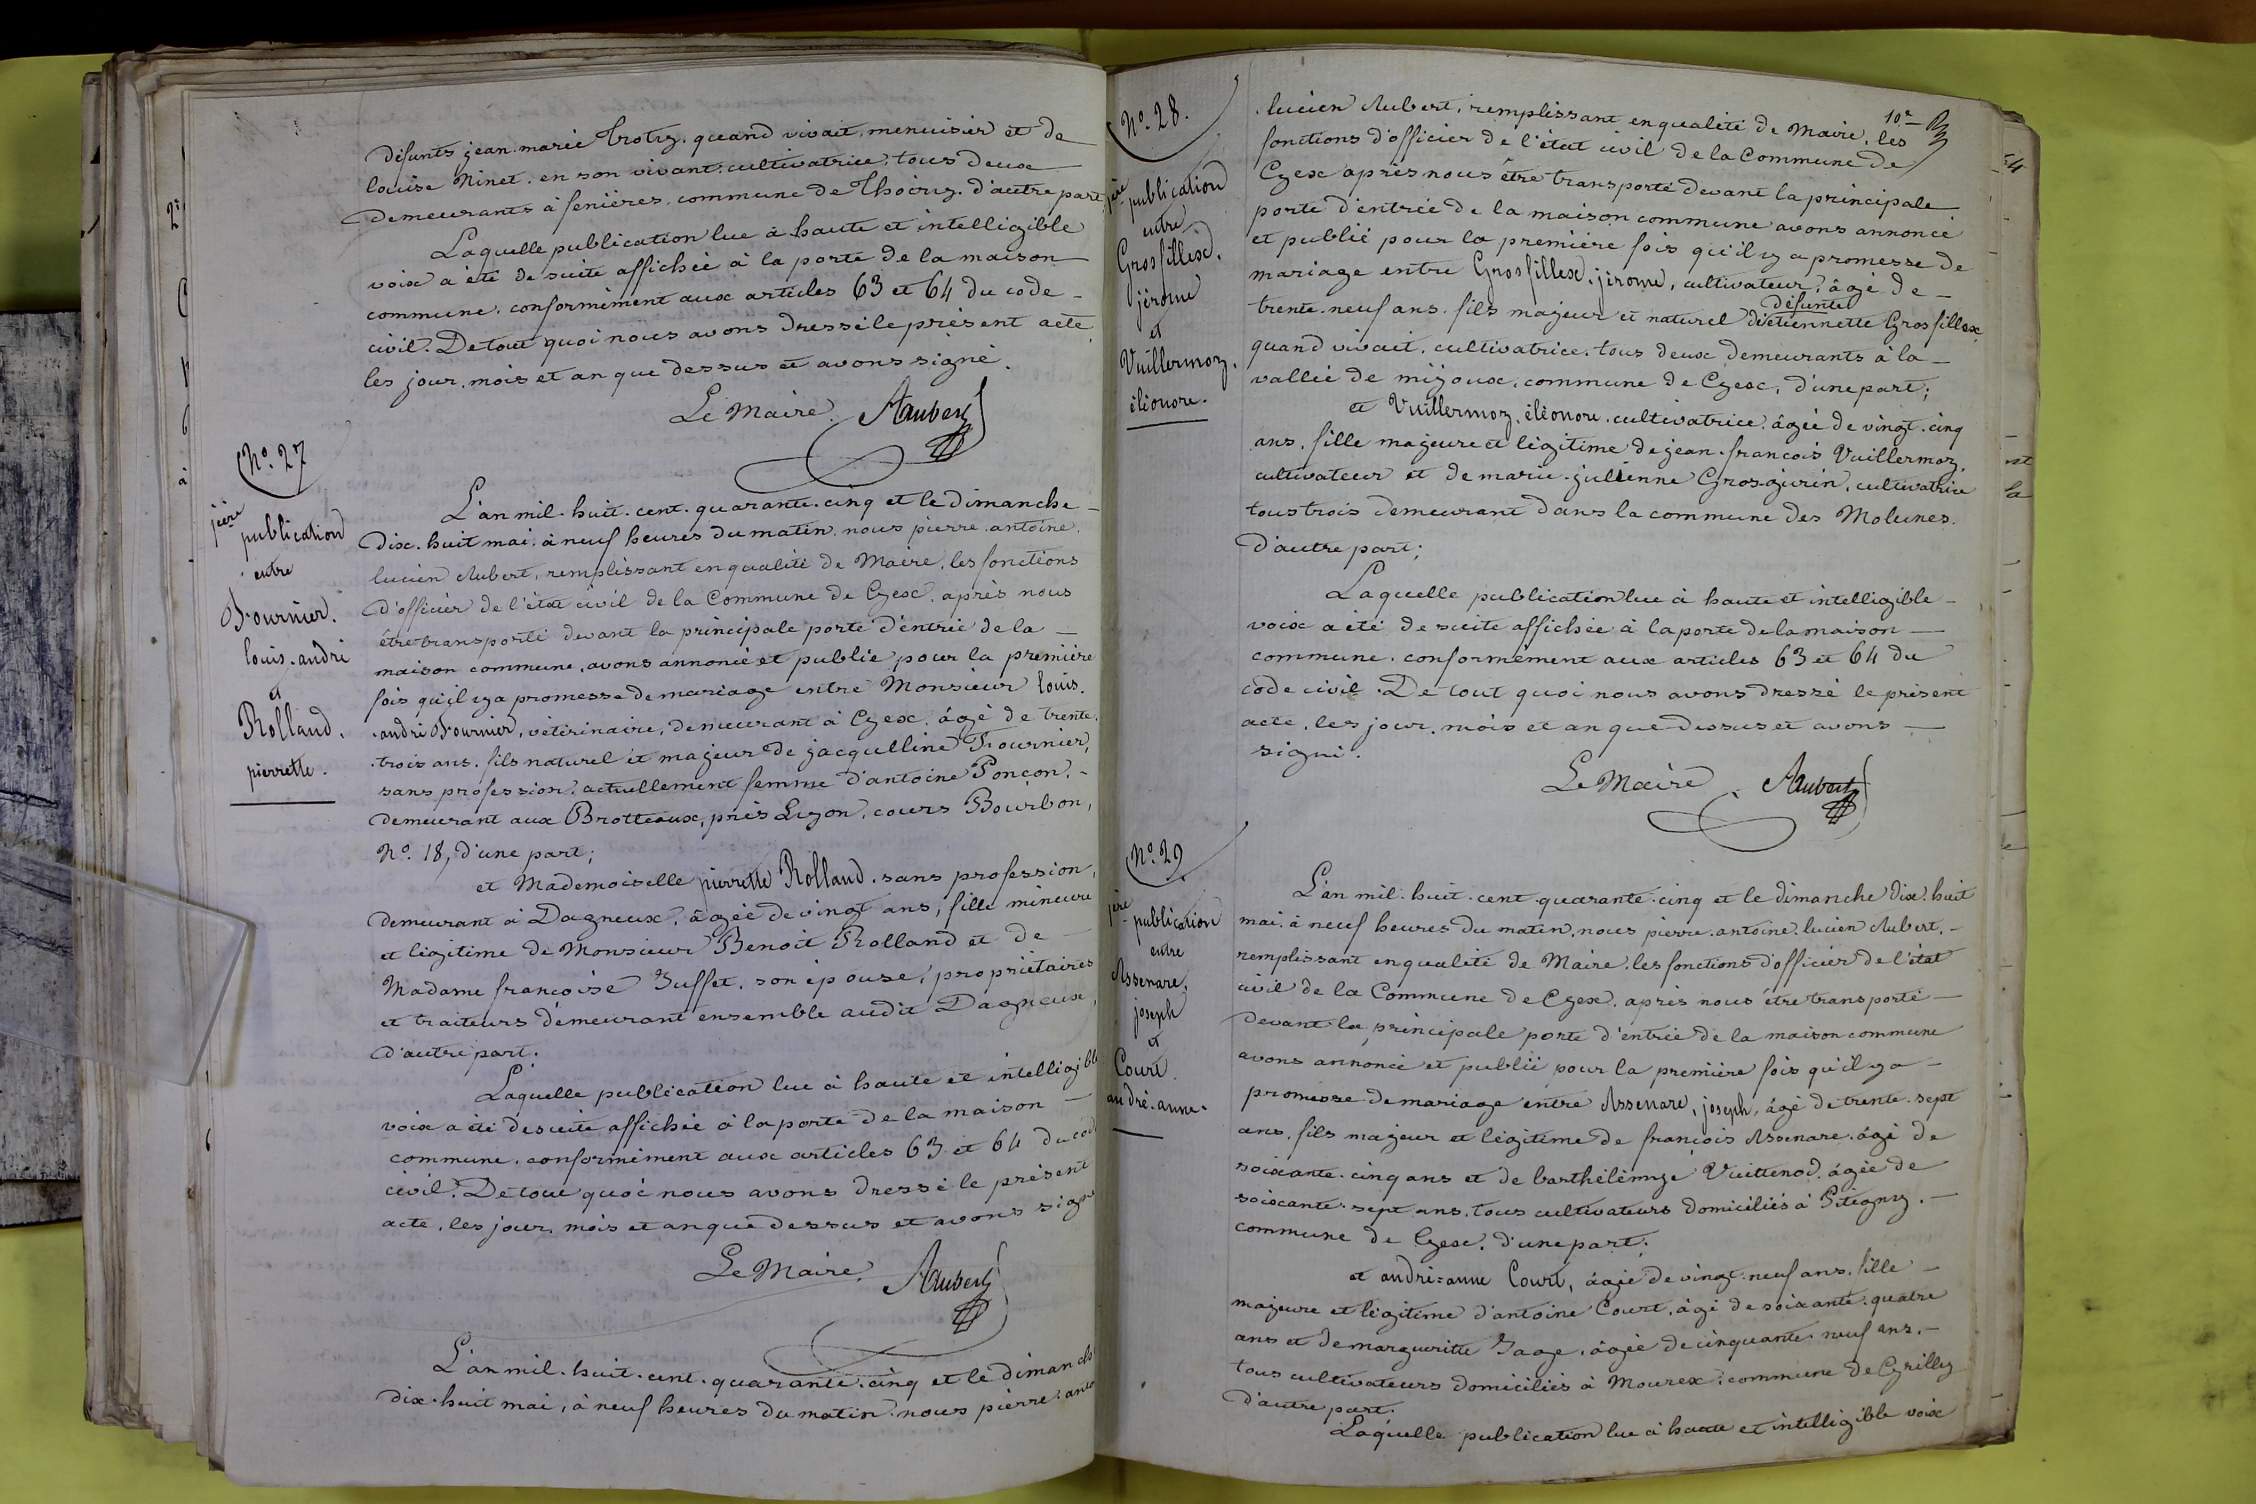 défunts jean-marie Trotry. quand vivait, menuisier et de
louise Ninet. en son vivant cultivatrice, tous deux
demeurants à fenières, commune de Thoiry. d'autre part;
Laquelle publication lue à haute et intelligible
voix a été de suite affichée à la porte de la maison
commune. conformément aux articles 63 et 64 du code
civil. De tout quoi nous avons dressé le présent acte
les jour, mois et an que dessus et avons signé.
Le Maire. Aubert
No. 27
1ère publication
entre
Fournier.
louis. andré
et
Rolland.
pierrette.
L'an mil. huit. cent. quarante. cinq et le dimanche
dix. huit mai, à neuf heures du matin, nous pierre. antoine.
lucien Aubert, remplissant en qualité de Maire, les fonctions
d'officier de l'état civil de la Commune de Gex, après nous
être transporté devant la principale porte d'entrée de la
maison commune, avons annoncé et publié pour la première
fois qu'il y a promesse de mariage entre Monsieur louis.
andré Fournier, vétérinaire, demeurant à Gex, âgé de trente.
trois ans. fils naturel et majeur de jacqulline Fournier,
sans profession, actuellement femme d'antoine Ponçon,
demeurant aux Brotteaux, près Lyon, cours Bourbon,
No. 18, d'une part;
et Mademoiselle pierrette Rolland. sans profession,
demeurant à Dagneux, âgée de vingt ans, fille mineure
et légitime de Monsieur Benoit Rolland et de
Madame françoise Juffet, son épouse, propriétaires
et traiteurs demeurant ensemble audit Dagneux,
d'autre part.
Laquelle publication lue à haute et intelligible
voix a été de suite affichée à la porte de la maison
commune. conformément aux articles 63 et 64 du code
civil. De tout quoi nous avons dressé le présent
acte, les jour, mois et an que dessus et avons signé
Le Maire, Aubert
L'an mil. huit. cent. quarante. cinq et le dimanche
dix. huit mai, à neuf heures du matin, nous pierre. anto
10e
No. 28.
1ère publication
entre
Grosfillex.
jérome
et
Vuillermoz.
éléonore.
lucien Aubert, remplissant en qualité de Maire, les
fonctions d'officier de l'état civil de la Commune de
Gex après nous être transporté devant la principale
porte d'entrée de la maison commune avons annoncé
et publié pour la première fois qu'il y a promesse de
mariage entre Grosfillex, jérome, cultivateur, âgé de
trente. neuf ans. fils majeur et naturel de défunte étiennette Grosfillex
quand vivait, cultivatrice. tous deux demeurants à la
vallée de mijoux, commune de Gex, d'une part;
et Vuillermoz, éléonore, cultivatrice, âgée de vingt. cinq
ans. fille majeure et légitime de jean. françois Vuillermoz,
cultivateur et de marie. julienne Grosgurin, cultivatrice
tous trois demeurant dans la commune des Molunes.
d'autre part;
Laquelle publication lue à haute et intelligible
voix a été de suite affichée à la porte de la maison
commune. conformément aux articles 63 et 64 du
code civil. De tout quoi nous avons dressé le présent
acte, les jour, mois et an que dessus et avons
signé.
Le Maire. Aubert
No. 29
1ère publication
entre
Assenare,
joseph
et
Court.
andré. anne.
L'an mil. huit. cent. quarante. cinq et le dimanche dix. huit
mai, à neuf heures du matin, nous pierre. antoine. lucien Aubert,
remplissant en qualité de Maire, les fonctions d'officier de l'état
civil de la Commune de Gex, après nous être transporté
devant la principale porte d'entrée de la maison commune
avons annoncé et publié pour la première fois qu'il y a
promesse de mariage entre Assenare, joseph, âgé de trente. sept
ans. fils majeur et légitime de françois Assenare. âgé de
soixante. cinq ans et de barthélemye Vuittenod. âgée de
soixante. sept ans. tous cultivateurs domiciliés à Pitegny,
commune de Gex, d'une part;
et andré=anne Court, âgée de vingt. neuf ans. fille
majeure et légitime d'antoine Court, âgé de soixante. quatre
ans et de marguerite Jage, âgée de cinquante. neuf ans.
tous cultivateurs domiciliés à Mourex, commune de Grilly
d'autre part.
Laquelle publication lue à haute et intelligible voix